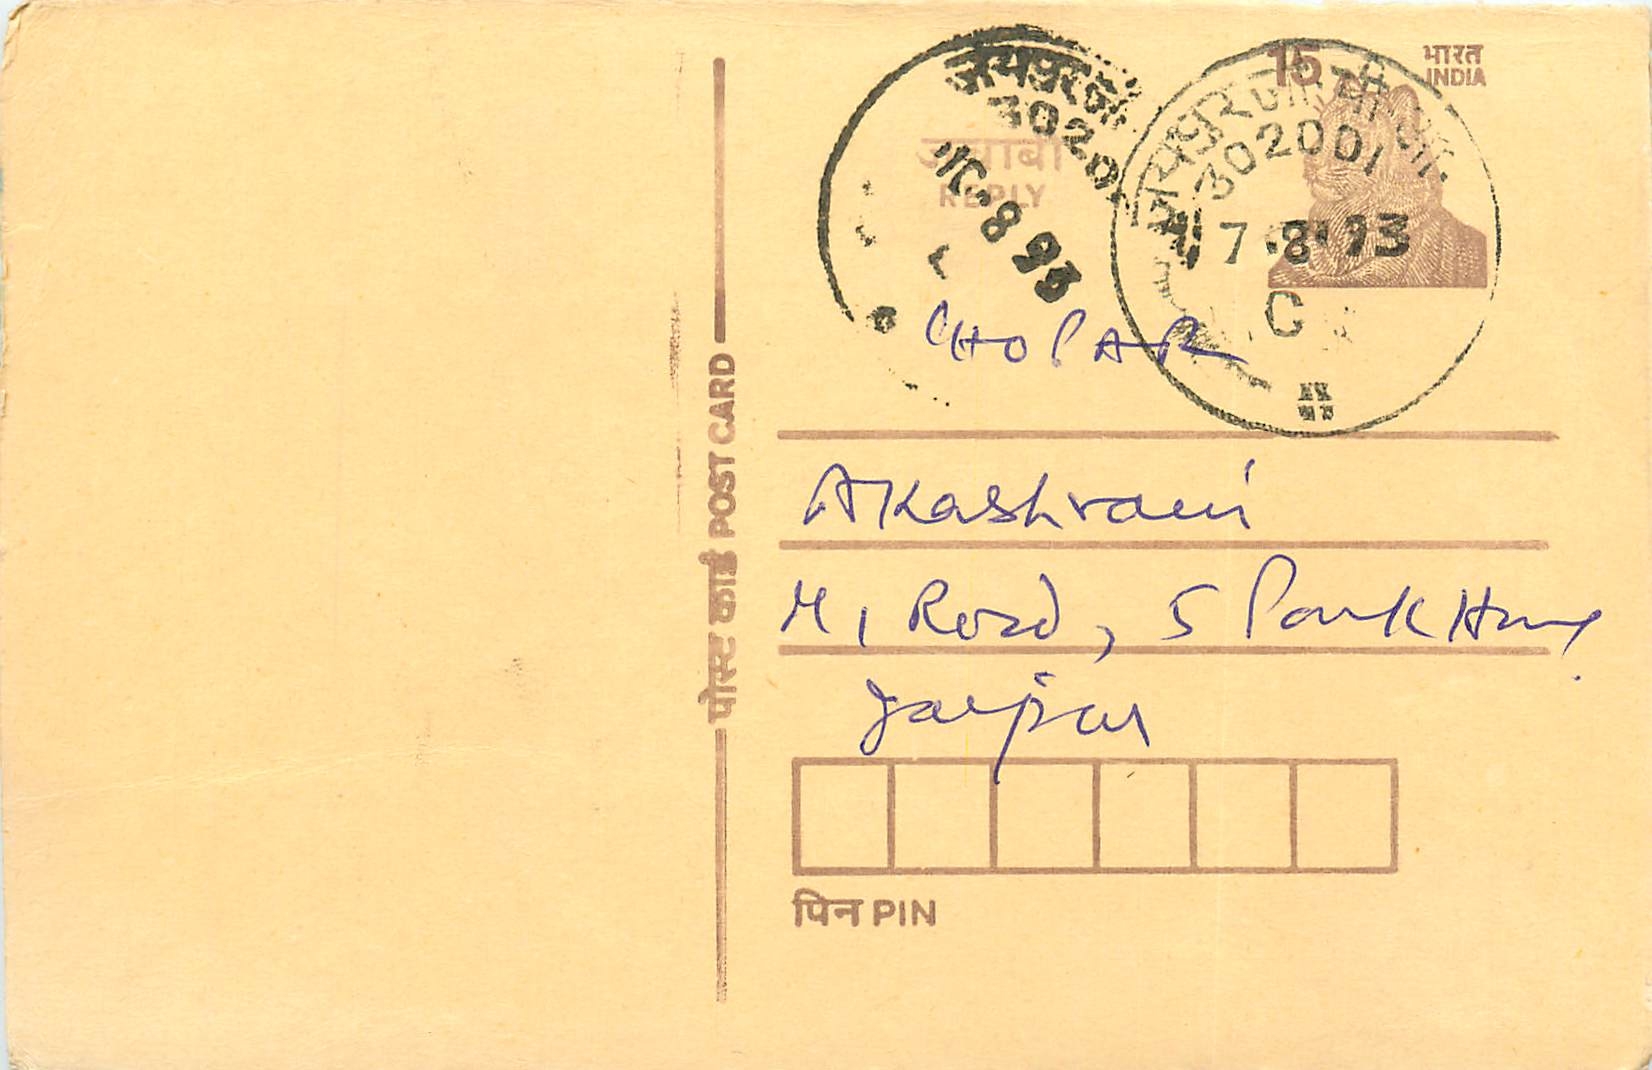 15
भारत
INDIA
जवाबी
REPLY
जयपुर जी.
30200
10.8 93
जयपुर जी.पी.ओ.
302001
7 8 93
C
CHOPAR
Akashvani
M, Road, 5 Park House
Jaipur
पोस्ट कार्ड POST CARD
पिन PIN